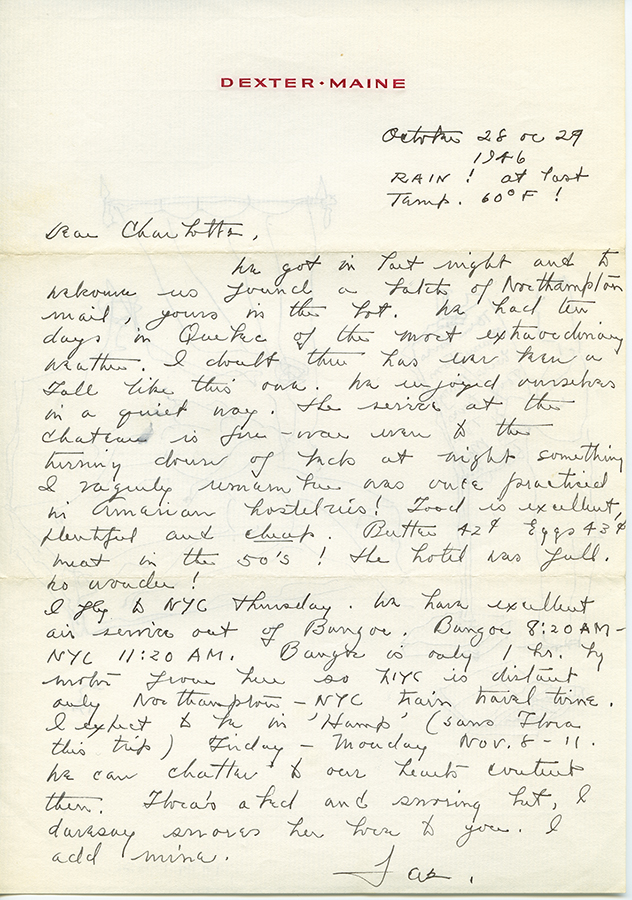 DEXTER • MAINE
October 28 or 29
1946
RAIN ! at last
Temp. 60°F !
Dear Charlotte,
We got in last night and to
welcome us found a batch of Northampton
mail, yours in the lot. We had ten
days in Quebec of the most extraordinary
weather. I doubt there has ever been a
Fall like this one. We enjoyed ourselves
in a quiet way. The service at the
Chateau is pre-war even to the
turning down of beds at night something
I vaguely remember was once practiced
in American hostelries! Food is excellent,
plentiful and cheap. Butter 42¢ Eggs 43¢
meat in the 50's ! The hotel was full.
No wonder !
I fly to NYC Thursday. We have excellent
air service out of Bangor. Bangor 8:20 AM -
NYC 11:20 AM. Bangor is only 1 hr. by
motor from here so NYC is distant
only Northampton - NYC train travel time.
I expect to be in 'Hamp' (sans Flora
this trip) Friday - Monday Nov. 8-11.
We can chatter to our hearts content
then. Flora's abed and snoring but, I
daresay snores her love to you. I
add mine.